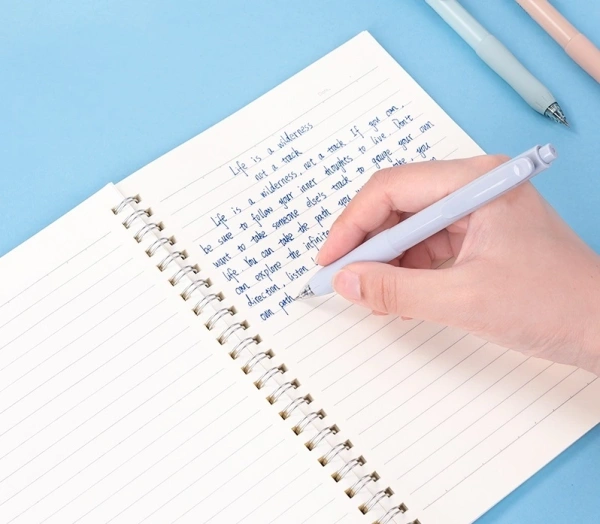 Life is a wilderness
not a track
Life is a wilderness, not a track If you can.
be sure to follow your inner thoughts to live Don't
want to take someone else's track to gauge your own
life You can take the path you take, you
can explore the infinite
direction, listen
own path